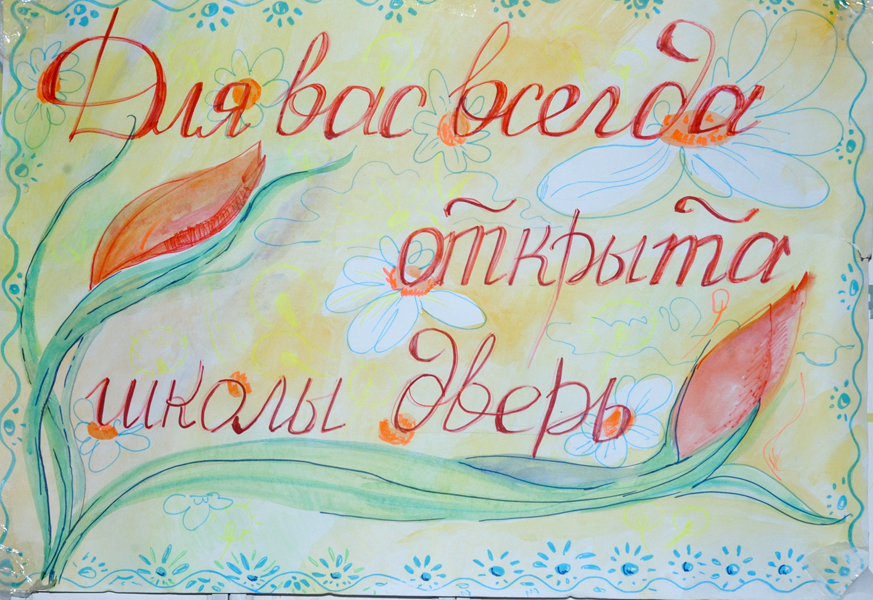 Для вас всегда
открыта
школы дверь